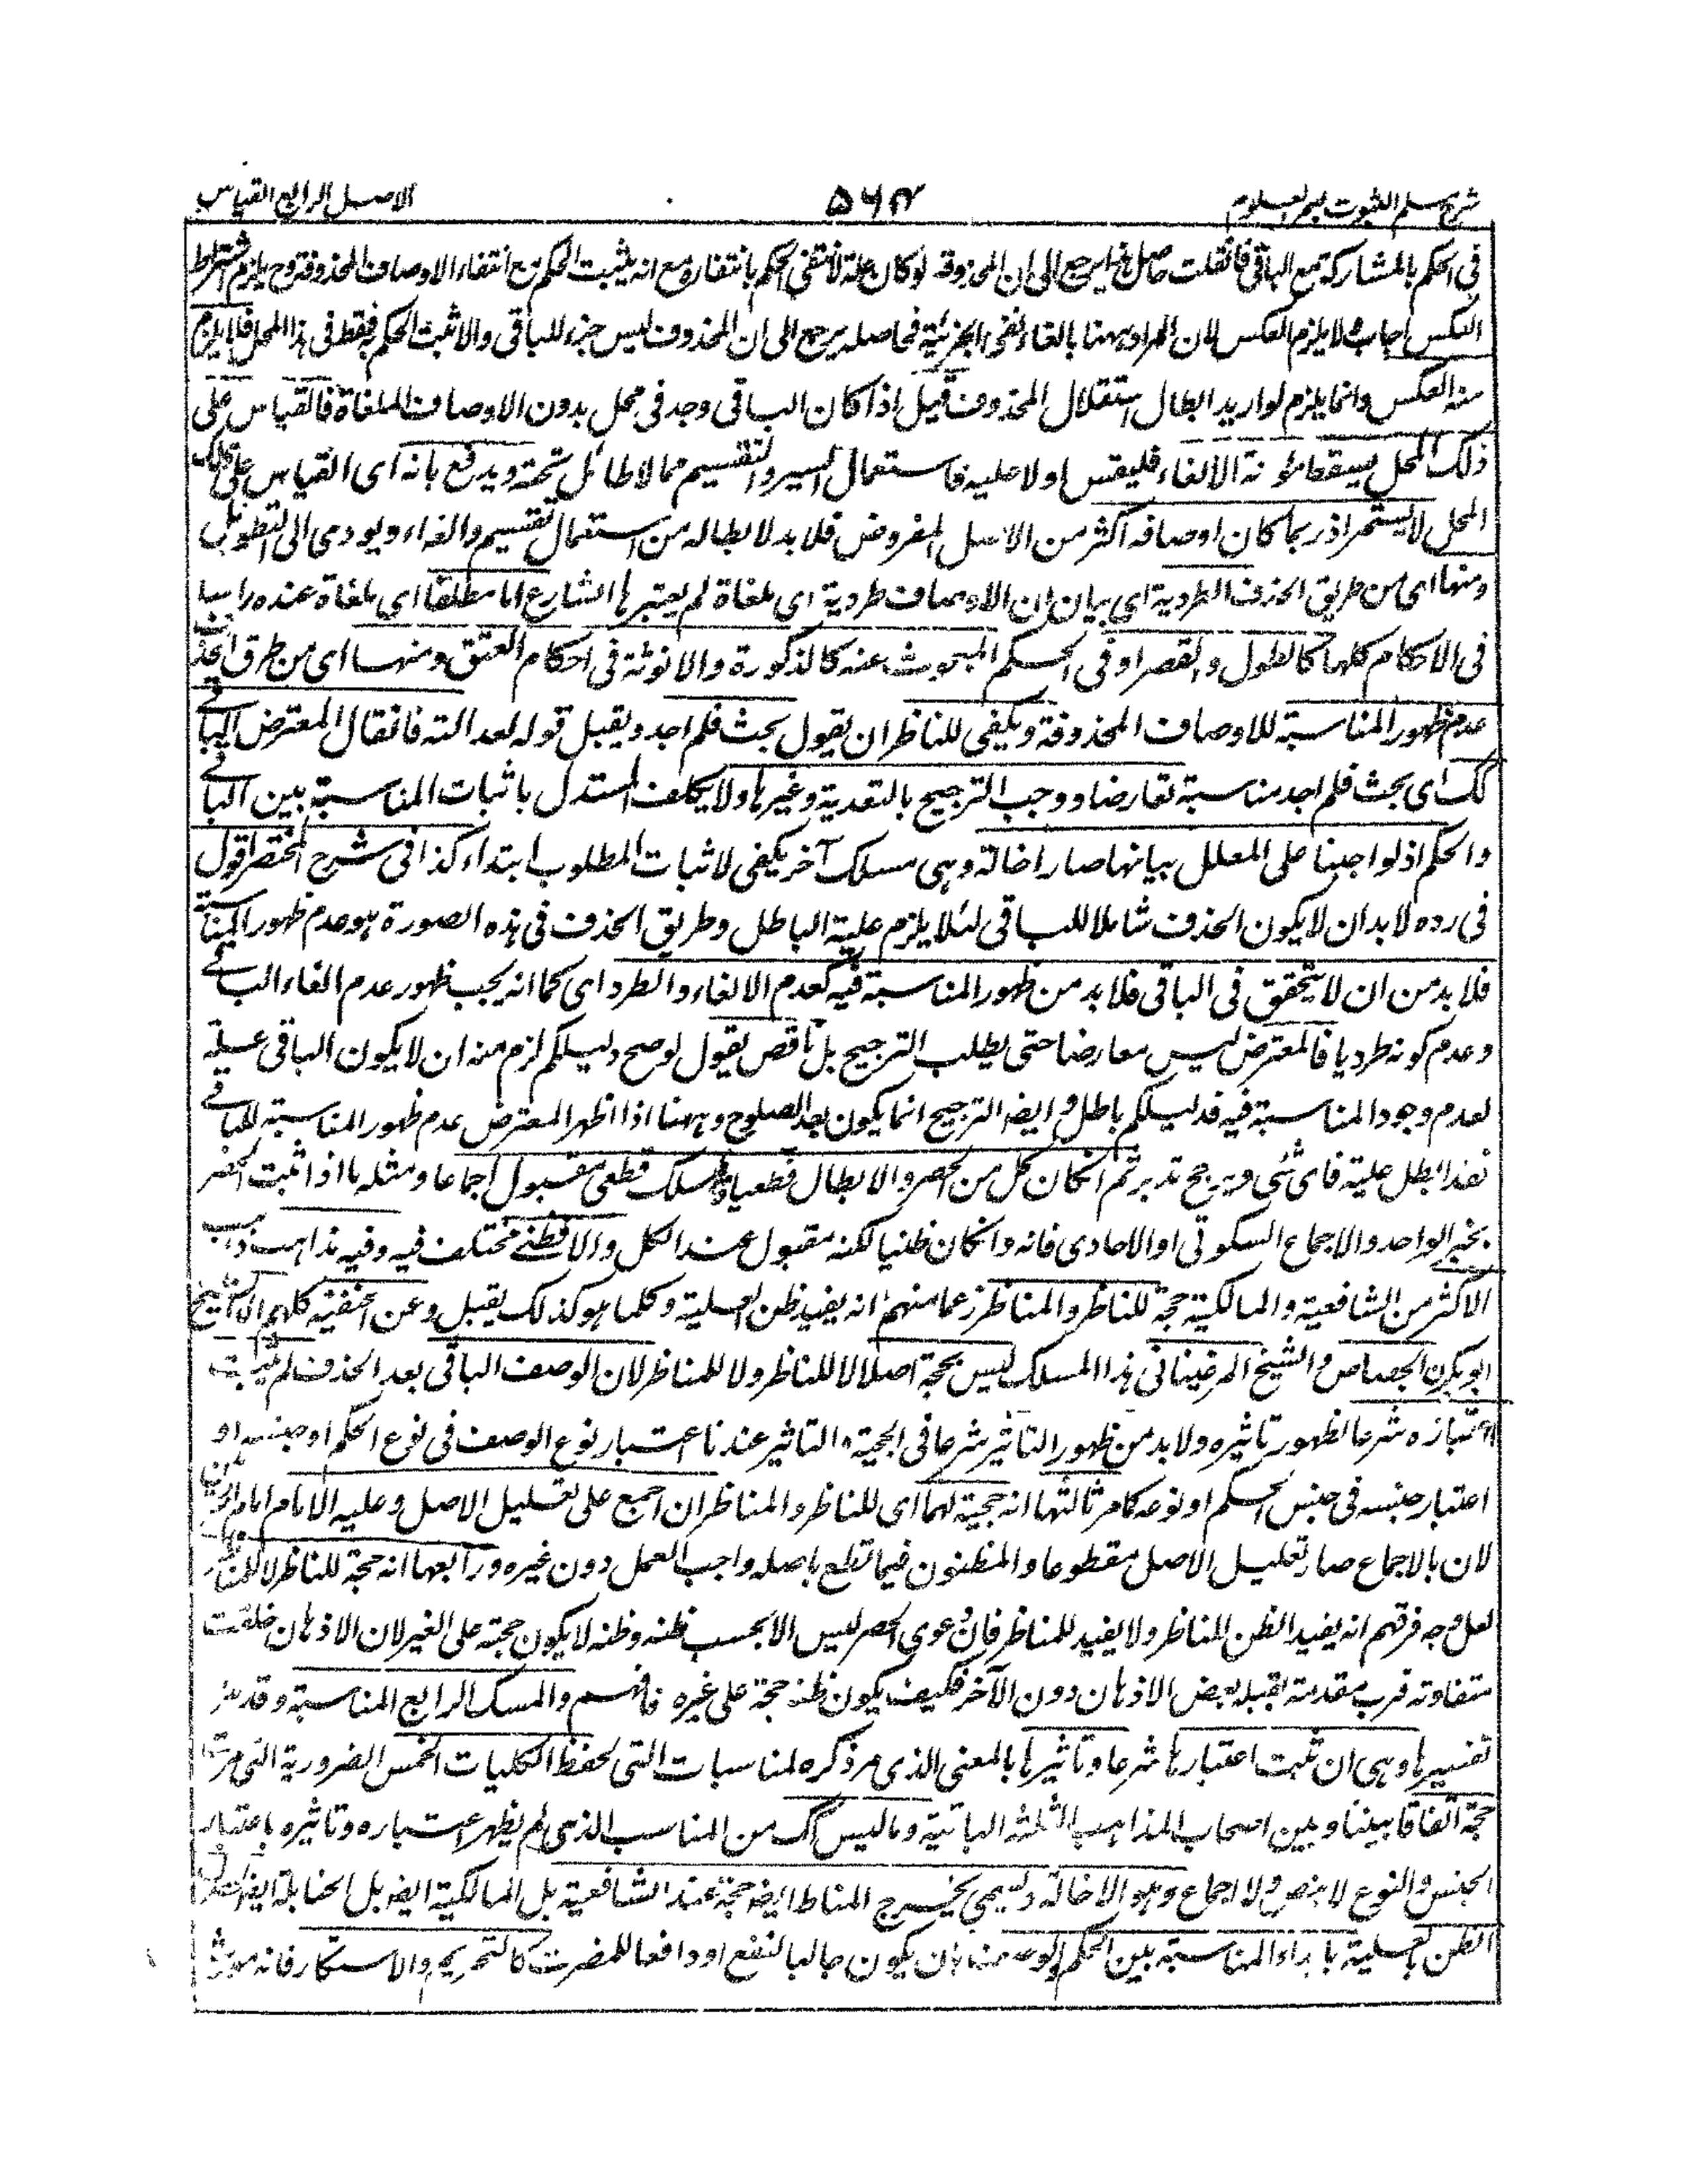 شرح مسلم الثبوت لبحر العلوم ۵۶۴ الاصل الرابع القياس
فى الحكم بالمشاركة مع الباقى فان قلت حاصل هذا يرجع الى ان المحذوفة لو كان علة لانتفى الحكم بانتفاره مع انه يثبت الحكم مع انتفاء الاوصاف المحذوفة وح يلزم اشتراط
العكس اجاب ولا يلزم العكس لان المراد ههنا بالغاء نفى الجزئية فحاصله يرجع الى ان المحذوف ليس جزء للباقى والا ثبت الحكم به فقط فى هذا المحل فلا يلزم
منه العكس وانما يلزم لو اريد ابطال استقلال المحذوف قيل اذا كان الباقى وجد فى محل بدون الاوصاف الملغاة فالقياس على
ذلك المحل يسقط مؤنة الالغاء فليقس اولا عليه فاستعمال السبر والتقسيم مما لا طائل تحته ويدفع بانه اى القياس على ذلك
المحل لا يستمر اذ ربما كان اوصافه اكثر من الاصل المفروض فلا بد لابطاله من استعمال تقسيم والغاء ويودى الى التطويل
ومنها اى من طريق الحذف الطردية اى بيان ان الاوصاف طردية اى ملغاة لم يعتبرها الشارع اما مطلقا اى ملغاة عنده راسا
فى الاحكام كلها كالطول والقصر او فى الحكم المبحوث عنه كالذكورة والانوثة فى احكام العتق ومنها اى من طرق الحذف
عدم ظهور المناسبة للاوصاف المحذوفة ويكفى للناظر ان يقول بحثت فلم اجد ويقبل قوله لعدالته فان قال المعترض الباقى
كك اى بحثت فلم اجد مناسبة تعارضا ووجب الترجيح بالتعدية وغيرها ولا يكلف المستدل باثبات المناسبة بين الباقى
والحكم اذ لو اجبنا على المعلل بيانها صار اخالة وهى مسلك آخر يكفى لاثبات المطلوب ابتداء كذا فى شرح المختصر اقول
فى رده لا بد ان لا يكون الحذف شاملا للباقى لئلا يلزم علية الباطل وطريق الحذف فى هذه الصورة هو عدم ظهور المناسبة
فلا بد من ان لا يتحقق فى الباقى فلا بد من ظهور المناسبة فيه كعدم الالغاء والطرد اى كما انه يجب ظهور عدم الغاء الباقى
وعدم كونه طرديا فالمعترض ليس معارضا حتى يطلب الترجيح بل ناقض يقول لو صح دليلكم لزم منه ان لا يكون الباقى علة
لعدم وجود المناسبة فيه فدليلكم باطل وايضا الترجيح انما يكون بعد الصلوح وههنا اذا اظهر المعترض عدم ظهور المناسبة للباقى
فقد ابطل علية فاى شئ يرجح تدبر ثم ان كان كل من الحصر والابطال قطعيا فالمسلك قطعى مقبول اجماعا ومثله ما اذا ثبت الحصر
بخبر الواحد والاجماع السكوتى او الاحادى فانه وان كان ظنيا لكنه مقبول عند الكل والا فظنى مختلف فيه وفيه مذاهب ذهب
الاكثر من الشافعية والمالكية حجة للناظر والمناظر زعما منهم انه يفيد ظن العلية وكلما هو كذلك يقبل وعن الحنفية كلهم الا الشيخ
ابو بكر الجصاص والشيخ المرغينانى هذا المسلك ليس بحجة اصلا لا للناظر ولا للمناظر لان الوصف الباقى بعد الحذف لم يثبت
اعتباره شرعا لظهور تاثيره ولا بد من ظهور التاثير شرعا فى الحجية والتاثير عندنا اعتبار نوع الوصف فى نوع الحكم او جنسه او
اعتبار جنسه فى جنس الحكم او نوعه كما مر ثالثها انه حجية لهما اى للناظر والمناظر ان اجمع على تعليل الاصل وعليه الامام امام الحرمين
لان بالاجماع صار تعليل الاصل مقطوعا والمظنون فيما قطع باصله واجب العمل دون غيره ورابعها انه حجة للناظر لا للمناظر
لعل وجه فرقهم انه يفيد الظن للناظر ولا يفيد للمناظر فان دعوى الحصر ليس الا بحسب ظنه وظنه لا يكون حجة على الغير لان الاذهان خلقت
متفاوتة فرب مقدمة يقبله بعض الاذهان دون الآخر فكيف يكون ظنه حجة على غيره فافهم والمسلك الرابع المناسبة وقد مر
تفسيرها وهى ان ثبت اعتبارها شرعا وتاثيرها بالمعنى الذى مر ذكره لمناسبات التى لحفظ الكليات الخمس الضرورية التى مرت
حجة اتفاقا بيننا وبين اصحاب المذاهب الثلثة الباقية وما ليس كك من المناسب الذى لم يظهر اعتباره وتاثيره باعتبار
الجنس والنوع لا بنص ولا اجماع وهو الاخالة ويسمى تخريج المناط ايضا حجة عند الشافعية بل المالكية ايضا بل الحنابلة ايضا
الظن بالعلية بابداء المناسبة بين الحكم والوصف بان يكون جالبا لنفع او دافعا للمضرت كالتحريم والاسكار فانه